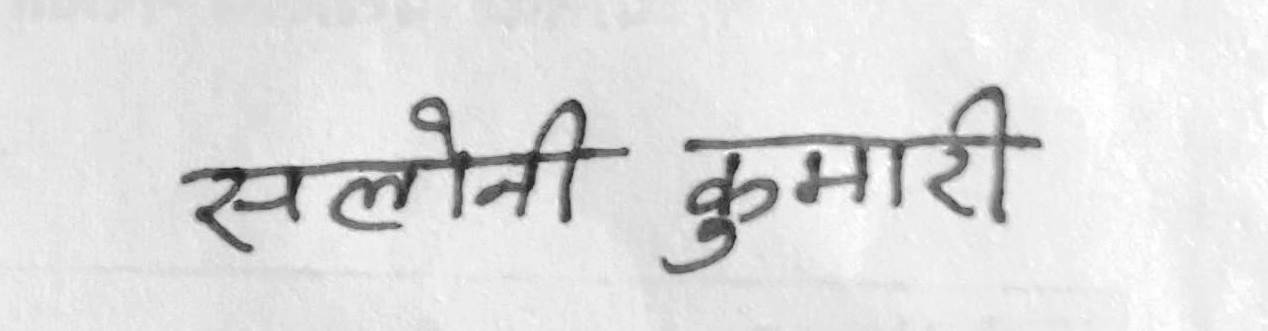 सलोनी कुमारी